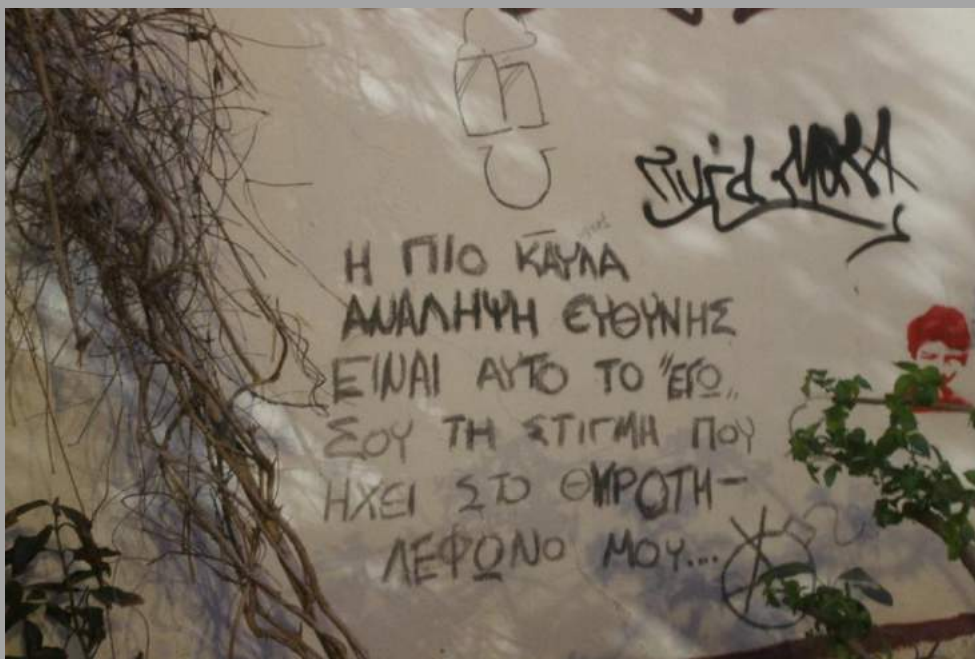 Η ΠΙΟ ΚΑΥΛΑ
ΑΝΑΛΗΨΗ ΕΥΘΥΝΗΣ
ΕΙΝΑΙ ΑΥΤΟ ΤΟ "ΕΓΩ„
ΣΟΥ ΤΗ ΣΤΙΓΜΗ ΠΟΥ
ΗΧΕΙ ΣΤΟ ΘΥΡΟΤΗ-
ΛΕΦΩΝΟ ΜΟΥ...